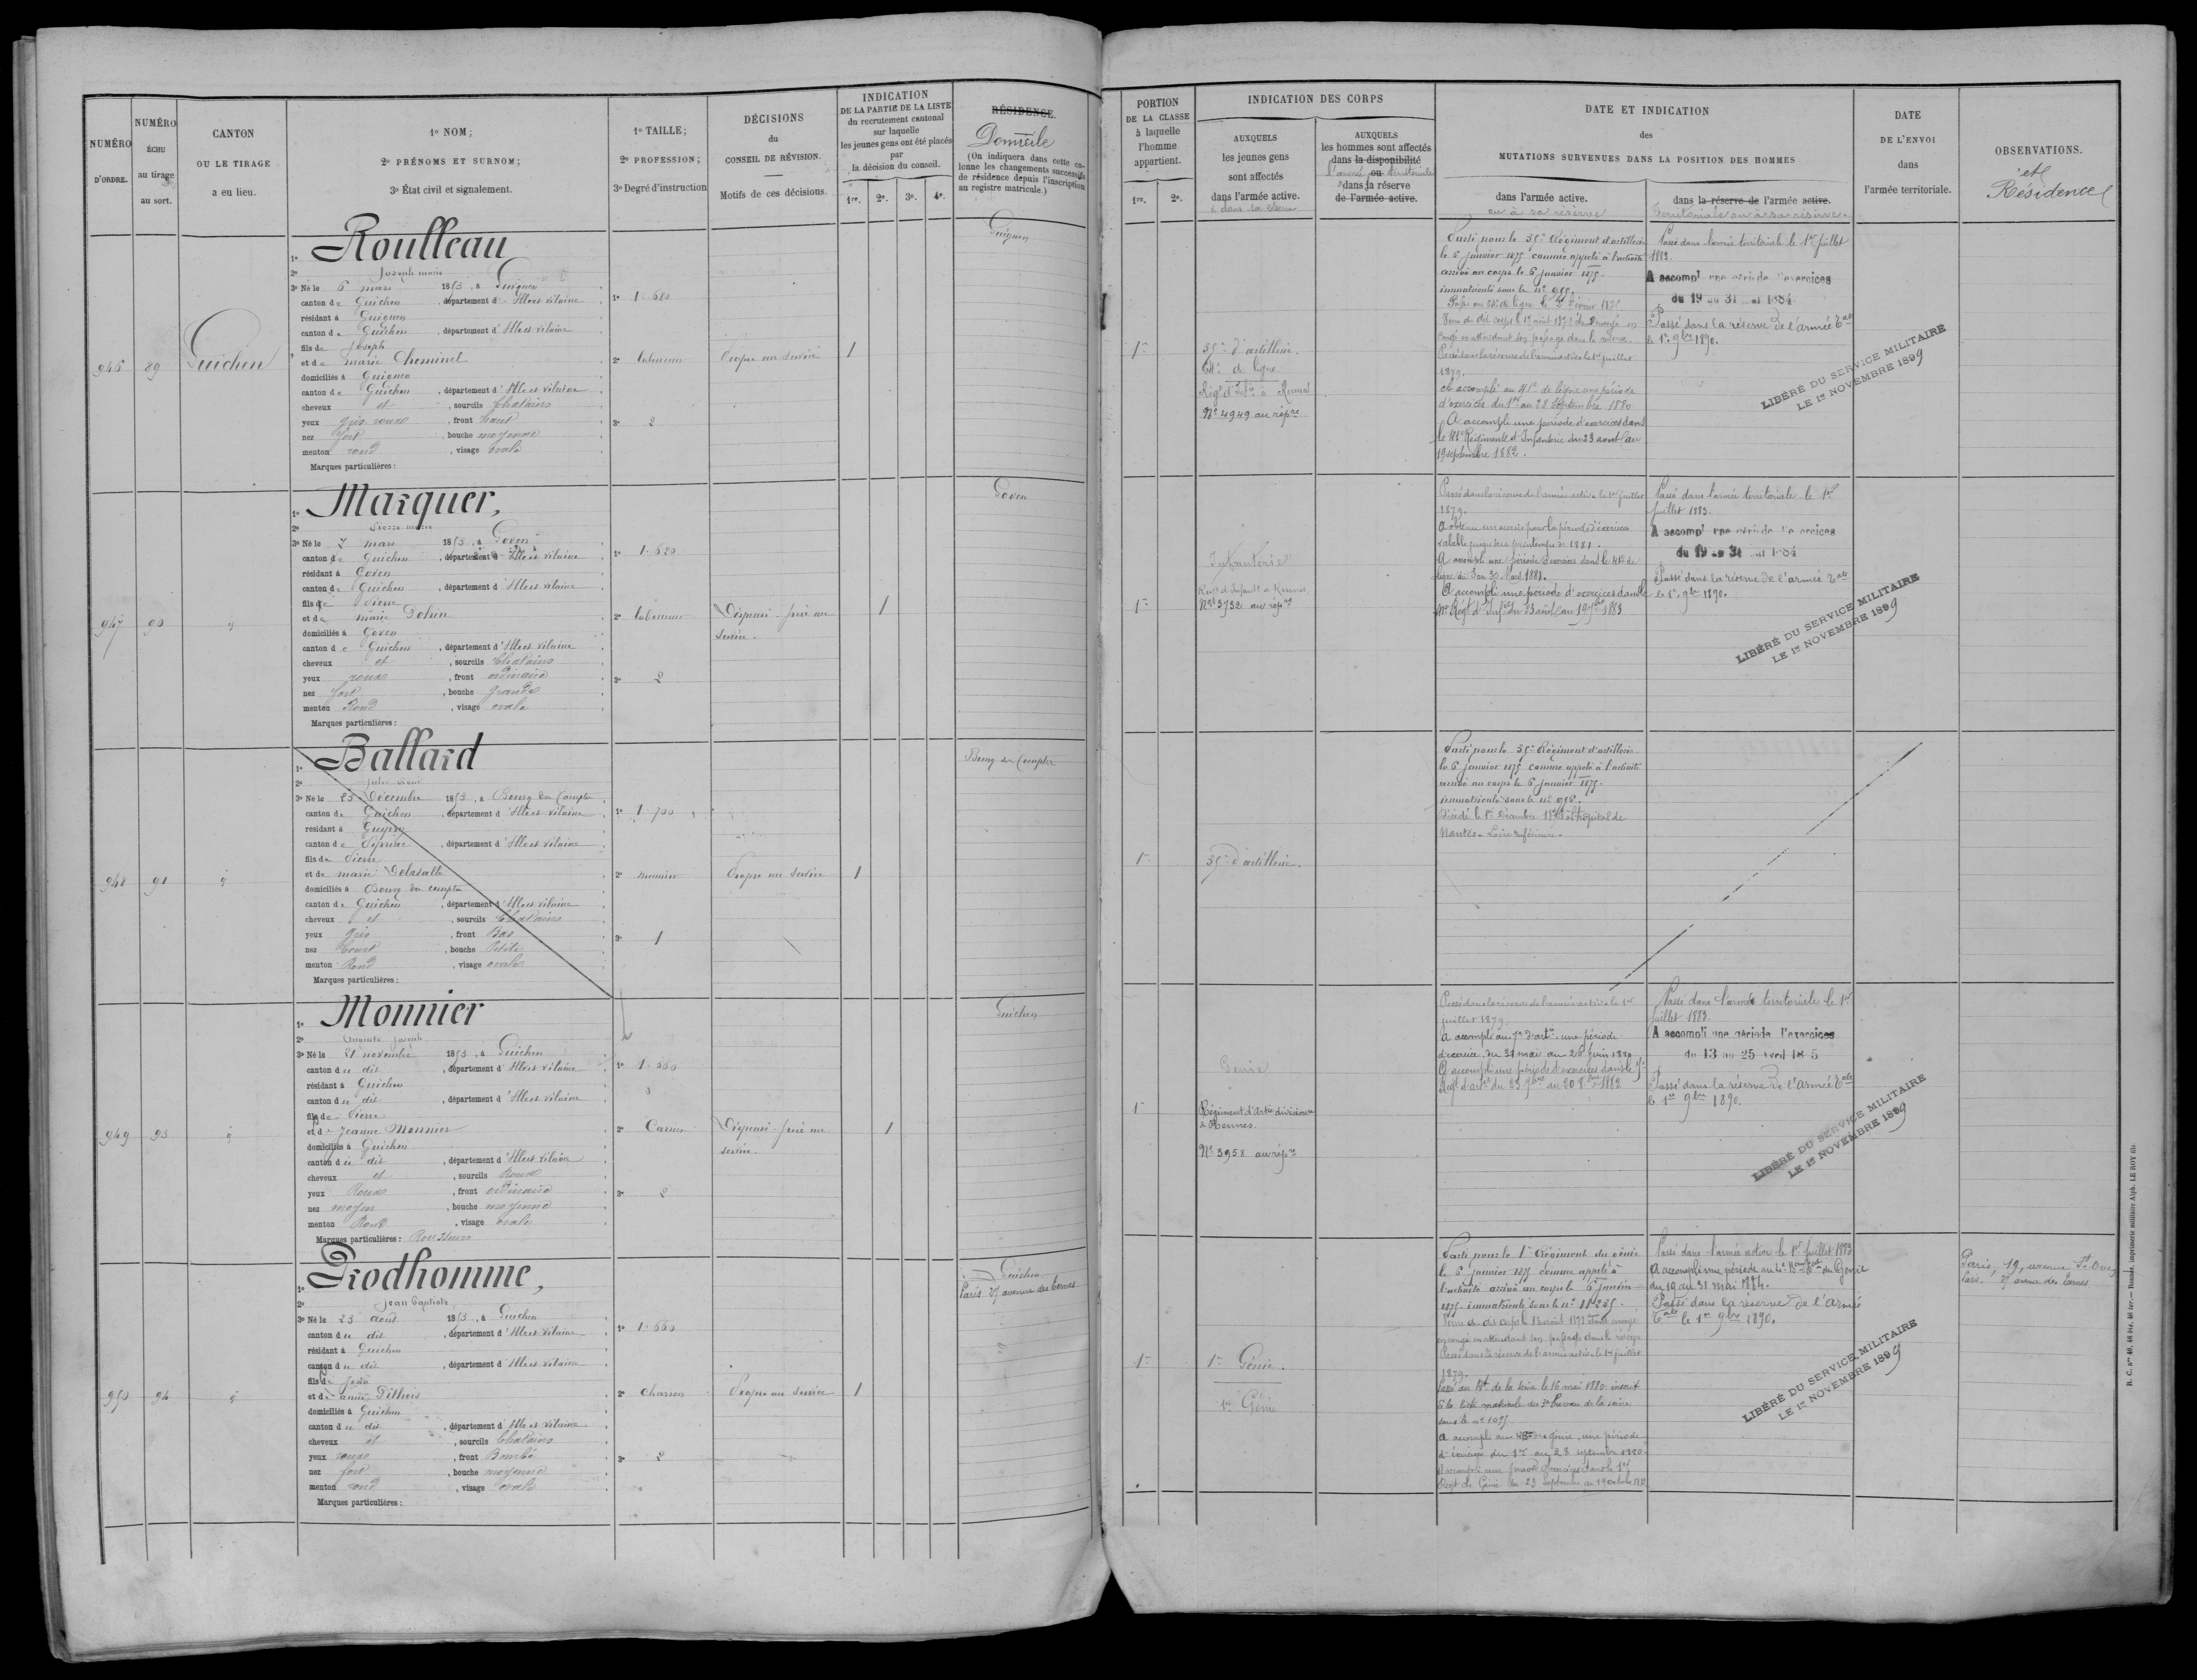 NUMÉRO
D'ORDRE.
NUMÉRO
ÉCHU
au tirage
au sort.
CANTON
OU LE TIRAGE
a eu lieu.
1º NOM;
2º PRÉNOMS ET SURNOM;
3º État civil et signalement.
1º TAILLE;
2º PROFESSION;
3º Degré d'instruction
DÉCISIONS
du
CONSEIL DE RÉVISION.
Motifs de ces décisions.
INDICATION
DE LA PARTIE DE LA LISTE
du recrutement cantonal
sur laquelle
les jeunes gens ont été placés
par
la décision du conseil.
1re. 2e. 3e. 4e.
RÉSIDENCE.
Domicile
(On indiquera dans cette co-
lonne les changements successifs
de résidence depuis l'inscription
au registre matricule.)
PORTION
DE LA CLASSE
à laquelle
l'homme
appartient.
1re. 2e.
INDICATION DES CORPS
AUXQUELS
les jeunes gens
sont affectés
dans l'armée active.
AUXQUELS
les hommes sont affectés
dans la disponibilité
ou
dans la réserve
de l'armée active.
DATE ET INDICATION
des
MUTATIONS SURVENUES DANS LA POSITION DES HOMMES
dans l'armée active.
ou à sa réserve
dans la réserve de l'armée active.
territoriale ou à sa réserve.
DATE
DE L'ENVOI
dans
l'armée territoriale.
OBSERVATIONS.
et
Résidence
946
89
Guichen
1º Roulleau
2º Joseph marie
3º Né le 6 mars 1853, à Guignen
canton de Guichen, département d'Ille et vilaine
résidant à Guignen
canton de Guichen, département d'Ille et vilaine
fils de Joseph
et de marie Cheminel
domiciliés à Guignen
canton de Guichen, département d'Ille et vilaine
cheveux et, sourcils Chatains
yeux gris roux, front haut
nez fort, bouche moyenne
menton rond, visage Ovale
Marques particulières:
1º 1.680
2º laboureur
3º 2
Propre au service
1
Guignen
1re
35e d'artillerie.
64e de ligne
Régt d'Infie à Rennes
Nº 4949 au répre
Parti pour le 35e Régiment d'artillerie
le 6 janvier 1875 comme appelé à l'activité
arrivé au corps le 6 janvier 1875.
immatriculé sous le nº
congé en attendant son passage dans la réserve.
Passé dans la réserve de l'armée active le 1er juillet
1879.
A accompli au 41e de ligne une période
d'exercices du 1er au 28 Septembre 1880
A accompli une période d'exercices dans
le 41e Régiment d'Infanterie du 23 aout au
19 septembre 1882.
Passé dans l'armée territoriale le 1er juillet
1883.
A accompli une période d'exercices
du 19 au 31 mai 1884
Passé dans la réserve de l'armée Tale
le 1er 9bre 1890.
LIBÉRÉ DU SERVICE MILITAIRE
LE 1er NOVEMBRE 1899
947
90
id
1º Marquer,
2º Pierre marie
3º Né le 7 mars 1853, à Goven
canton de Guichen, département d'Ille et vilaine
résidant à Goven
canton de Guichen, département d'Ille et vilaine
fils de Pierre
et de marie
domiciliés à Goven
canton de Guichen, département d'Ille et vilaine
cheveux et, sourcils Chatains
yeux roux, front ordinaire
nez fort, bouche grande
menton Rond, visage ovale
Marques particulières:
1º 1.620
2º laboureur
3º 2
Dispensé - frère au
service.
1
Goven
1re
Infanterie
Régt d'Infantie à Rennes
Nº 3732 au répre
Passé dans la réserve de l'armée active le 1er juillet
1879.
A obtenu un sursis pour la période d'exercices
valable jusqu'au printemps de 1881.
A accompli une période d'exercices dans le 41e de
ligne du 3 au 30 Mars 1881.
A accompli une période d'exercices dans le
Passé dans l'armée territoriale le 1er
juillet 1883.
A accompli une période d'exercices
du 19 au 31 mai 1884
Passé dans la réserve de l'armée Tale
le 1er 9bre 1890.
LIBÉRÉ DU SERVICE MILITAIRE
LE 1er NOVEMBRE 1899
948
91
id
1º Ballard
2º
3º Né le 25 Décembre 1853, à Bourg des Comptes
canton de Guichen, département d'Ille et vilaine
résidant à
canton de Pipriac, département d'Ille et vilaine
fils de Pierre
et de marie Delasalle
domiciliés à Bourg des comptes
canton de Guichen, département d'Ille et vilaine
cheveux et, sourcils Chatains
yeux gris, front Bas
nez Court, bouche Petite
menton Rond, visage ovale
Marques particulières:
1º 1.700
2º meunier
3º 1
Propre au service
1
Bourg des Comptes
1re
35e d'artillerie.
Parti pour le 35e Régiment d'artillerie
le 6 janvier 1875 comme appelé à l'activité
arrivé au corps le 6 janvier 1875.
immatriculé sous le nº
Décédé le 1er Décembre à l'hôpital de
Nantes - Loire Inférieure -
949
93
id
1º Monnier
2º Auguste Joseph
3º Né le 21 novembre 1853, à Guichen
canton du dit, département d'Ille et vilaine
résidant à Guichen
canton du dit, département d'Ille et vilaine
fils de Pierre
et de Jeanne Monnier
domiciliés à Guichen
canton du dit, département d'Ille et vilaine
cheveux et, sourcils Roux
yeux Roux, front ordinaire
nez moyen, bouche moyenne
menton Rond, visage ovale
Marques particulières: Rousseurs
1º
2º Carrier
3º 2
Dispensé - frère au
service.
1
Guichen
1re
Génie
Régiment d'Artie divisionre
à Rennes.
Nº 3958 au répre
Passé dans la réserve de l'armée active le 1er
juillet 1879.
A accompli au 7e d'artie une période
d'exercices du 31 mai au 26 juin 1880
A accompli une période d'exercices dans le 7e
Régt d'artie du 23 au 20 1882
Passé dans l'armée territoriale le 1er
juillet 1883.
A accompli une période d'exercices
du 13 au 25 avril 1885
Passé dans la réserve de l'armée Tale
le 1er 9bre 1890.
LIBÉRÉ DU SERVICE MILITAIRE
LE 1er NOVEMBRE 1899
950
94
id
1º Prodhomme,
2º Jean baptiste
3º Né le 23 aout 1853, à Guichen
canton du dit, département d'Ille et vilaine
résidant à Guichen
canton du dit, département d'Ille et vilaine
fils de Jean
et de anne
domiciliés à Guichen
canton du dit, département d'Ille et vilaine
cheveux et, sourcils Chatains
yeux roux, front Bombé
nez fort, bouche moyenne
menton rond, visage ovale
Marques particulières:
1º 1.660
2º Charron
3º 2
Propre au service
1
Guichen
Paris 27 avenue des ternes
1re
1er Génie.
1er Génie
Parti pour le 1er Régiment du génie
le 6 janvier 1875 comme appelé à
l'activité arrivé au corps le 6 janvier
1875. immatriculé sous le nº
en congé en attendant son passage dans la réserve
Passé dans la réserve de l'armée active le 1er juillet
1879.
Passé au de la Seine le 16 mai 1880 inscrit
à la liste matricule du 3e bureau de la seine
sous le nº 1095
A accompli au génie, une période
d'exercices du 1er au 28 septembre 1880.
A accompli une période d'exercices dans le 1er
Régt de Génie du 23 Septembre au 19 octobre 1882
Passé dans l'armée active le 1er juillet 1883
A accompli une période au du Génie
du 19 au 31 mai 1884.
Passé dans la réserve de l'armée
Tale le 1er 9bre 1890.
LIBÉRÉ DU SERVICE MILITAIRE
LE 1er NOVEMBRE 1899
Paris, 19, avenue St Ouen
Paris. 27 avenue des Ternes
R. C. nº 49, 48 bis, 48 ter. — Rennes, imprimerie militaire Alph. LE ROY fils